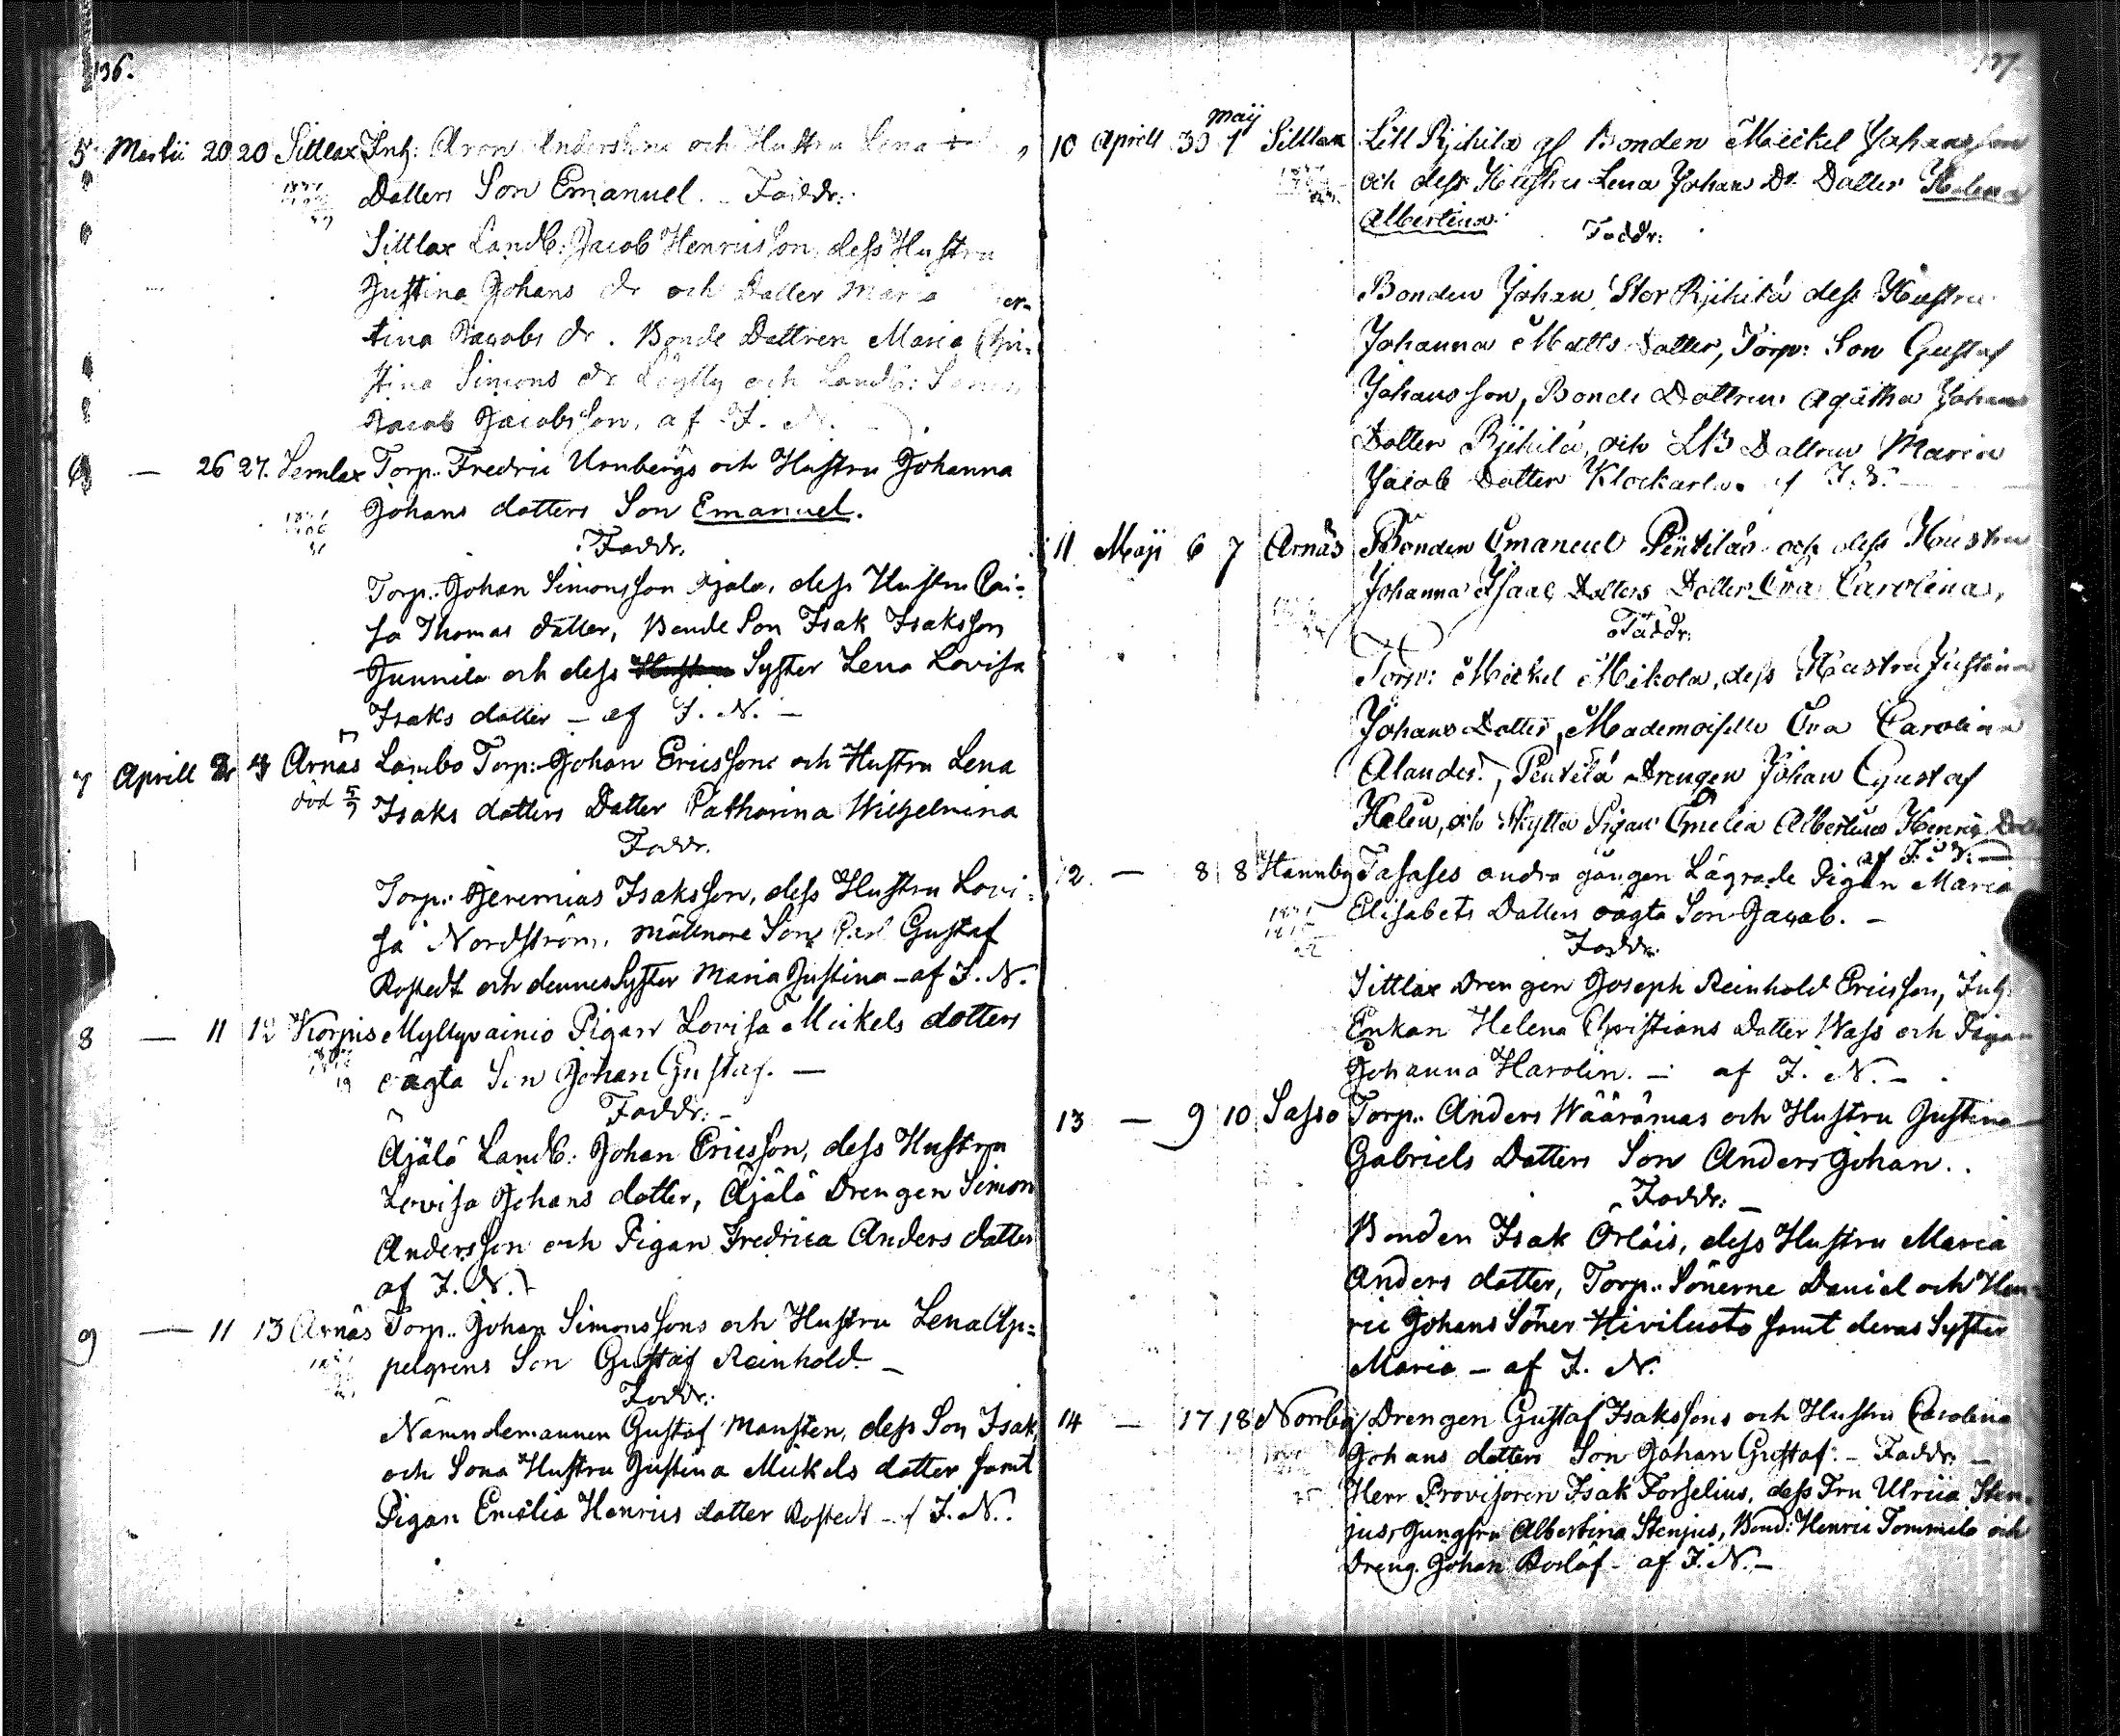 136.
5 Martii 20 20 Sittlax Inh: Aron Anderssons och Hustru Lena
Dotters Son Emanuel. - Faddr:
Sittlax Landb: Jacob Henricsson, dess Hustru
Justina Johans dr och Dotter Maria
tina Jacobs dr. Bonde Dottren Maria Chri-
stina Simons dr Löylly och Landb: Sonen
Jacob Jacobsson, af I. N.
6 — 26 27. Semlax Torp. Fredric Urnbergs och Hustru Johanna
Johans dotters Son Emanuel.
Faddr.
Torp. Johan Simonsson Äjälä, dess Hustru Cai-
sa Thomas dotter, Bonde Son Isak Isaksson
Junnila och dess Hustru Syster Lena Lovisa
Isaks dotter — af I. N. —
7 Aprill 2 3 Arnäs Lambo Torp: Johan Ericssons och Hustru Lena
död 5/7 Isaks dotters Dotter Catharina Wilhelmina
Faddr.
Torp. Jeremias Isaksson, dess Hustru Lovi-
sa Nordström, mölnare Son Carl Gustaf
Rostedt och dennes Syster Maria Justina — af I. N.
8 — 11 12 Korpis Myllyvainio Pigan Lovisa Mickels dotters
19 oägta Son Johan Gustaf. —
Faddr: —
Äjälä Landb: Johan Ericsson, dess Hustru
Lovisa Johans dotter, Äjälä Drengen Simon
Andersson och Pigan Fredrica Anders dotter
af I. N.
9 — 11 13 Arnäs Torp. Johan Simonssons och Hustru Lena Ap-
pelgrens Son Gustaf Reinhold —
Faddr:
Nämndemannen Gustaf Mansten, dess Son Isak,
och Sona Hustru Justina Mickels dotter samt
Pigan Emelia Henrics dotter Rostedt — af I. N.
137.
10 Aprill 30 Maij 1 Sittlax Lill Rjihilä gl Bonden Mickel Johansson
och dess Hustru Lena Johans Dr. Dotter Helena
Albertina. Faddr:
Bonden Johan Stor Rjihilä dess Hustru
Johanna Matts Dotter, Torp: Son Gustaf
Johansson, Bonde Dottren Agatha Johans
Dotter Rjihilä, och LB Dottren Maria
Jacob Dotter Klockarla. af I. N.
11 Maji 6 7 Arnäs Bonden Emanuel Penkiläs och dess Hustru
Johanna Isaac Dotters Dotter Eva Carolina,
Faddr:
Torp: Mickel Mikola, dess Hustru Justina
Johans Dotter, Mademoiselle Eva Carolina
Alander, Pentilä Drengen Johan Gustaf
Helen, och Skyttä Pigan Emelia Albertina Henric Dotter
af I. N. —
12. — 8 8 Hannby Tasases andra gången Lägrade Pigan Maria
Elisabets Dotters oägta Son Jacob. —
Faddr:
Sittlax Drengen Joseph Reinhold Ericsson, Inh:
Enkan Helena Christians Dotter Wass och Pigan
Johanna Harolin. — af I. N. —
13 — 9 10 Sasso Torp. Anders Wäärämas och Hustru Justina
Gabriels Dotters Son Anders Johan.
Faddr: —
Bonden Isak Orläis, dess Hustru Maria
Anders dotter, Torp. Sönerne Daniel och Hen-
ric Johans Söner Hiviluoto samt deras Syster
Maria — af I. N.
14 — 17 18 Norrby Drengen Gustaf Isakssons och Hustru Carolina
Johans dotters Son Johan Gustaf. — Faddr: —
Herr Provisoren Isak Forselius, dess Fru Ulrica Sten-
jus, Jungfru Albertina Stenjus, Bond: Henric Tommila och
Dreng. Johan Roslöf — af I. N. —